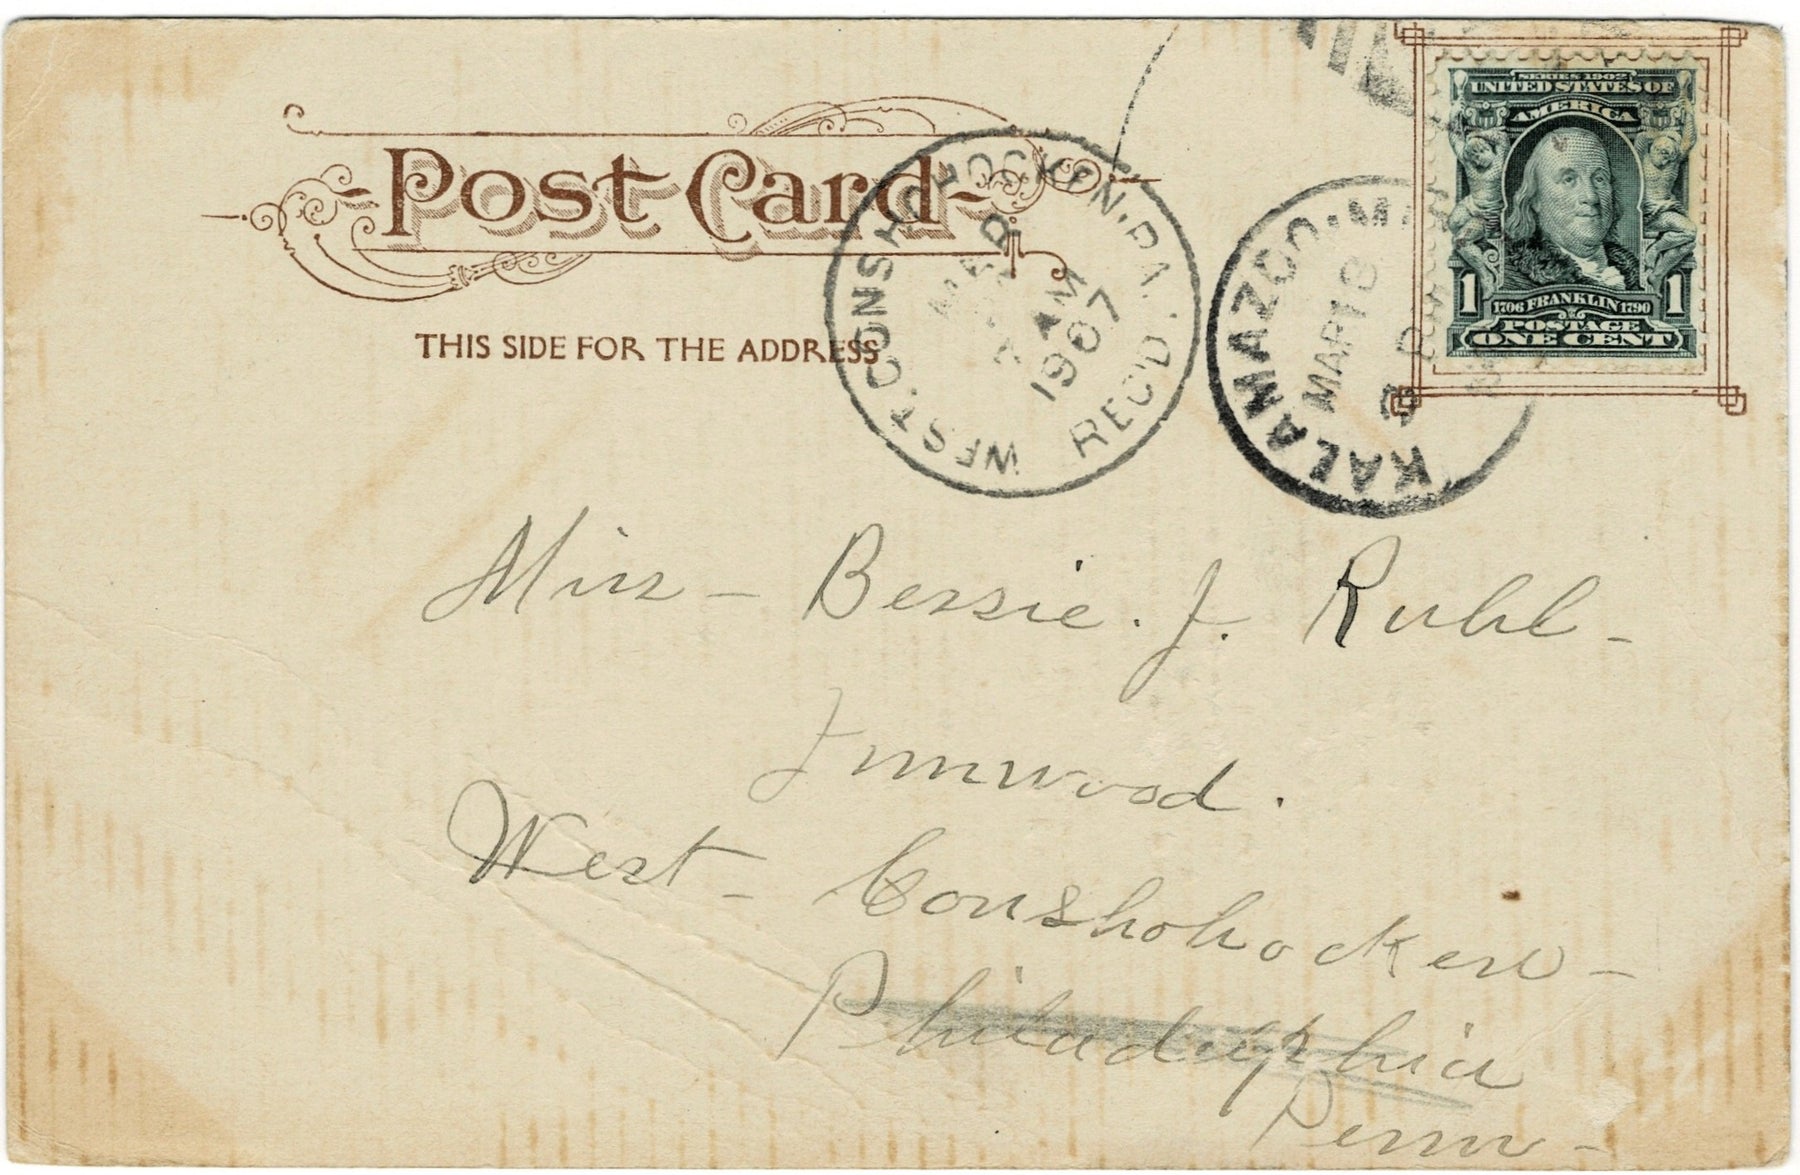 Post Card
THIS SIDE FOR THE ADDRESS
WEST. CONSHOHOCKEN, PA. REC'D.
MAR
7 AM
1907
KALAMAZOO, MICH
MAR 18
SERIES 1902
UNITED STATES OF
AMERICA
1 1706 FRANKLIN 1790 1
POSTAGE
ONE CENT
Miss - Bessie. J. Ruhl -
Innwood.
West - Conshohocken -
Philadelphia
Penn -